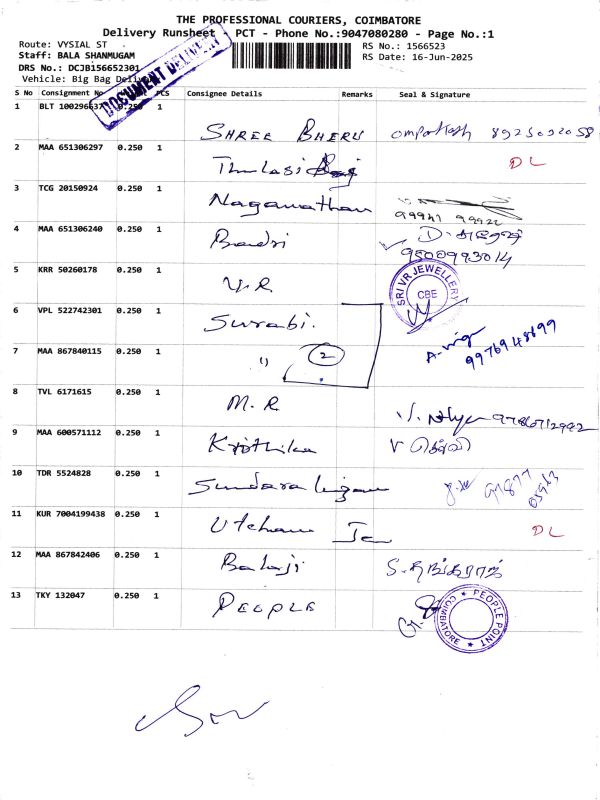 THE PROFESSIONAL COURIERS, COIMBATORE
Delivery Runsheet - PCT - Phone No.:9047080280 - Page No.:1
Route: VYSIAL ST
RS No.: 1566523
Staff: BALA SHANMUGAM
RS Date: 16-Jun-2025
DRS No.: DCJB156652301
Vehicle: Big Bag
DOCUMENT DELIVERY
S No Consignment No PCS Consignee Details Remarks Seal & Signature
1 BLT 0.250 1 SHREE BHERU
2 MAA 651306297 0.250 1 Thulasi DL
3 TCG 20150924 0.250 1 Naganathan
4 MAA 651306240 0.250 1 Badri 9500993014
5 KRR 50260178 0.250 1 V.R SRI VR JEWELLERY CBE
6 VPL 522742301 0.250 1 Surabi.
7 MAA 867840115 0.250 1 " 2 9976948699
8 TVL 6171615 0.250 1 M.R
9 MAA 600571112 0.250 1 Krithika
10 TDR 5524828 0.250 1
11 KUR 7004199438 0.250 1 DL
12 MAA 867842406 0.250 1 Balaji
13 TKY 132047 0.250 1 PEOPLE PEOPLE POINT COIMBATORE